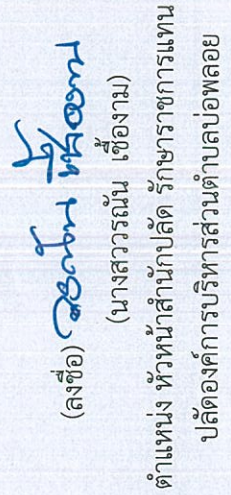 (ลงชื่อ)
(นางสววรณัน เชื้องาม)
ตำแหน่ง หัวหน้าสำนักปลัด รักษาราชการแทน
ปลัดองค์การบริหารส่วนตำบลบ่อพลอย